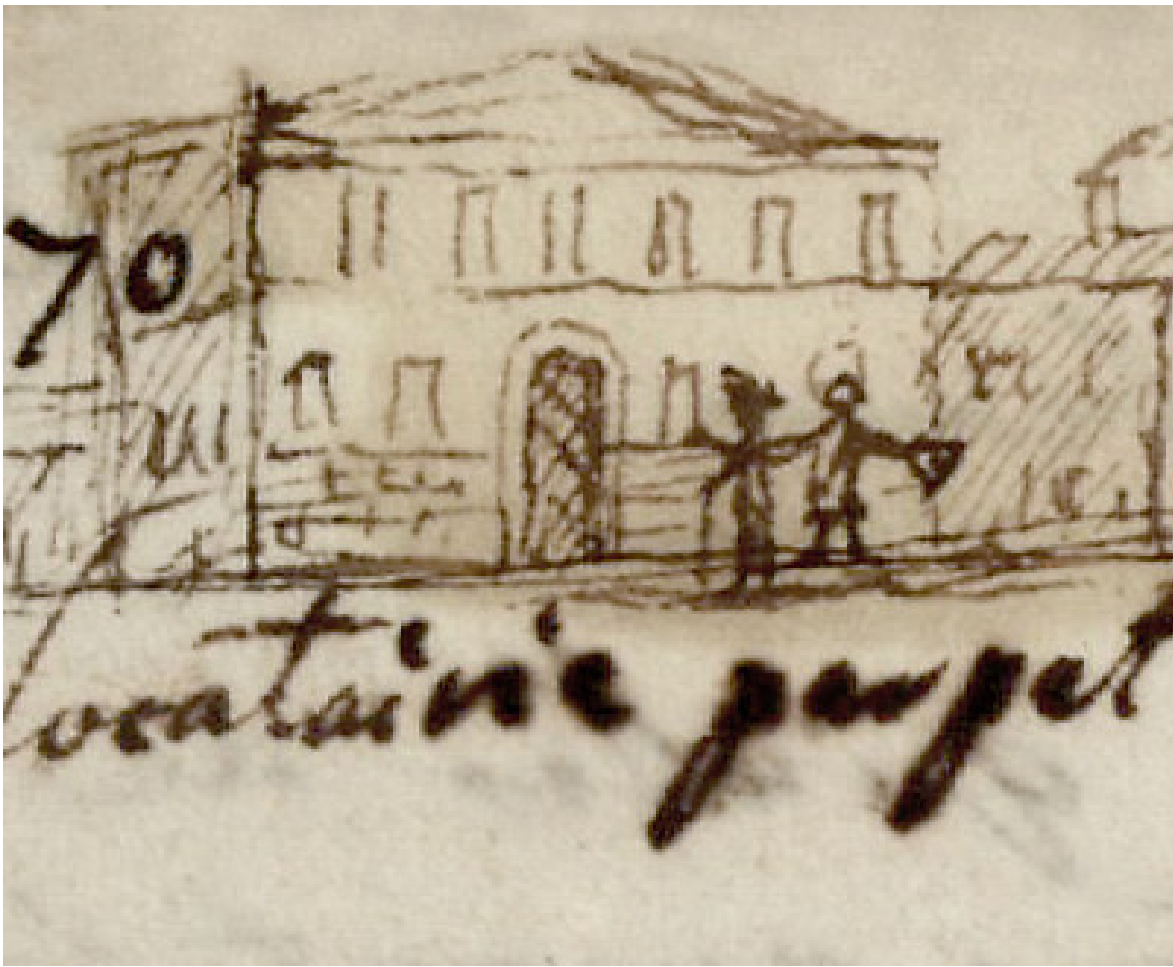 70
locatairie perpet